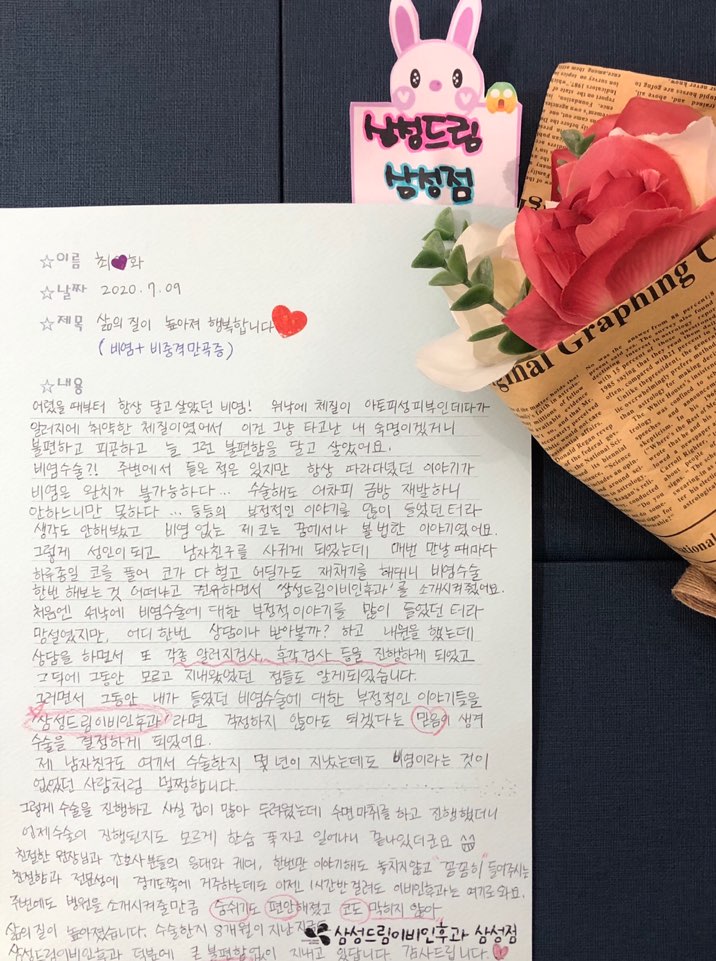 삼성드림
삼성점
☆이름 최♥화
☆날짜 2020.7.09
☆제목 삶의 질이 높아져 행복합니다
(비염+비중격만곡증)
☆내용
어렸을 때부터 항상 달고 살았던 비염! 워낙에 체질이 아토피성피부인데다가
알러지에 취약한 체질이였어서 이건 그냥 타고난 내 숙명이겠거니
불편하고 피곤하고 늘 그런 불편함을 달고 살았어요.
비염수술?! 주변에서 들은 적은 있지만 항상 따라다녔던 이야기가
비염은 완치가 불가능하다... 수술해도 어차피 금방 재발하니
안하느니만 못하다... 등등의 부정적인 이야기를 많이 들었던 터라
생각도 안해봤고 비염 없는 제 코는 꿈에서나 볼 법한 이야기였어요.
그렇게 성인이 되고 남자친구를 사귀게 되었는데 매번 만날 때마다
하루종일 코를 풀어 코가 다 헐고 어딜가도 재채기를 해대니 비염수술
한번 해보는 것 어떠냐고 권유하면서 '삼성드림이비인후과'를 소개시켜줬어요.
처음엔 워낙에 비염수술에 대한 부정적 이야기를 많이 들었던 터라
망설였지만, 어디 한번 상담이나 받아볼까? 하고 내원을 했는데
상담을 하면서 또 각종 알러지검사, 후각검사 등을 진행하게 되었고
그 덕에 그동안 모르고 지내왔었던 점들도 알게되었습니다.
그러면서 그동안 내가 들었던 비염수술에 대한 부정적인 이야기들을
'삼성드림이비인후과'라면 걱정하지 않아도 되겠다는 믿음이 생겨
수술을 결정하게 되었어요.
제 남자친구도 여기서 수술한지 몇 년이 지났는데도 비염이라는 것이
없었던 사람처럼 멀쩡합니다.
그렇게 수술을 진행하고 사실 겁이 많아 두려웠는데 수면마취를 하고 진행했더니
언제 수술이 진행된지도 모르게 한숨 푹 자고 일어나니 끝나있더군요
친절한 원장님과 간호사분들의 응대와 케어, 한번만 이야기해도 놓치지않고 "꼼꼼히" 들어주시는
친절함과 전문성에 경기도쪽에 거주하는데도 이젠 1시간반 걸려도 이비인후과는 여기로 와요.
주변에도 병원을 소개시켜줄만큼 숨쉬기도 편안해졌고 코도 막히지 않아
삶의 질이 높아졌습니다. 수술한지 8개월이 지난 지금도
삼성드림이비인후과 덕분에 큰 불편함없이 지내고 있답니다. 감사드립니다.
삼성드림이비인후과 삼성점
iginal Graphing C